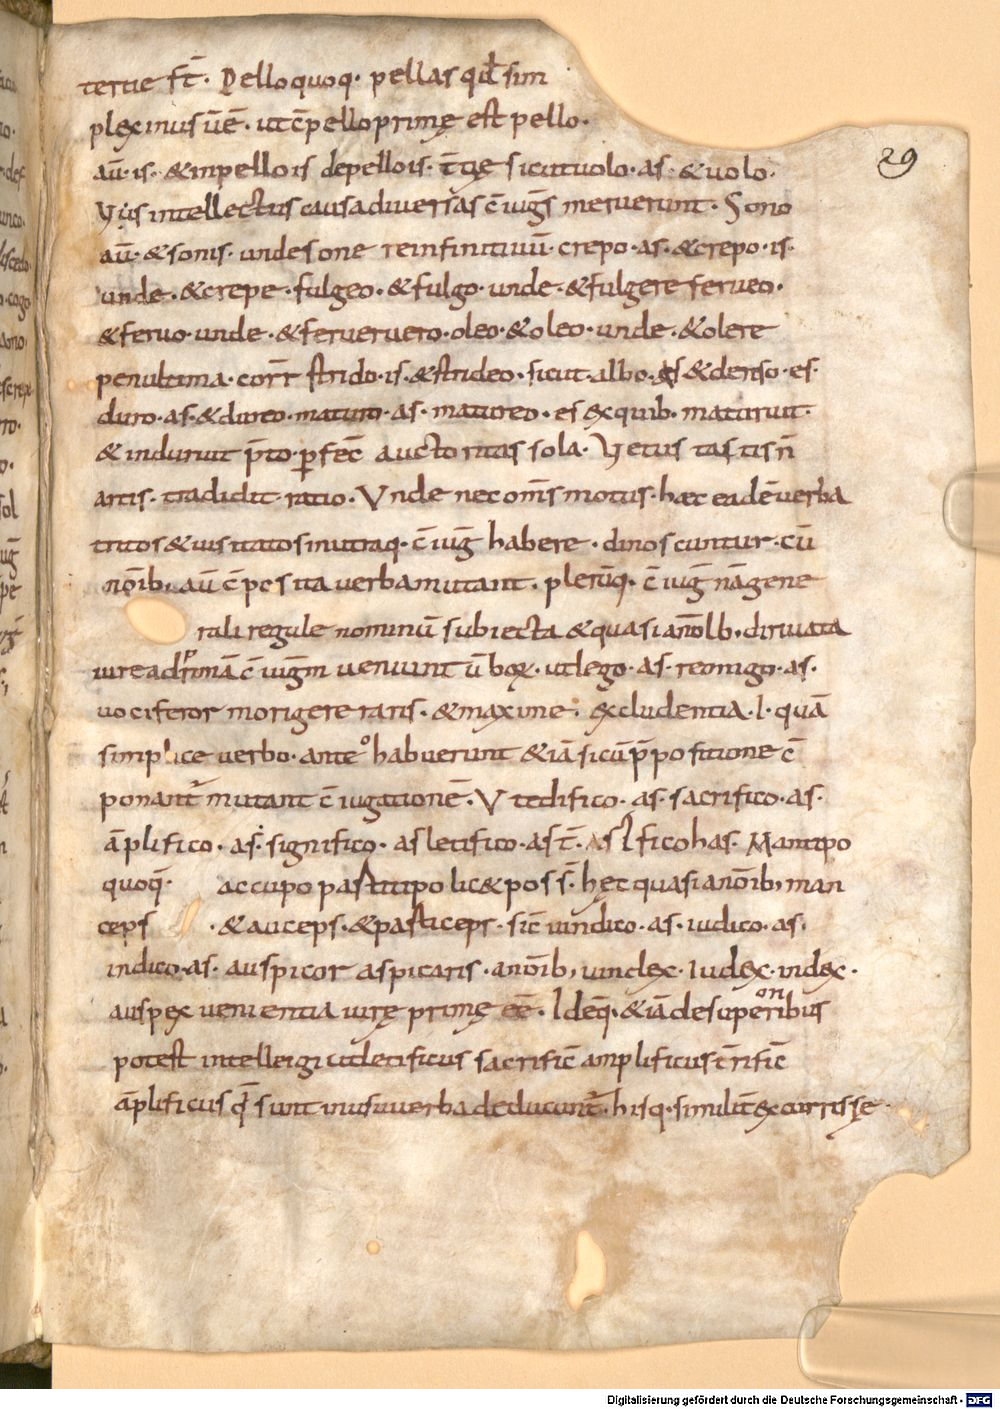 tertie st̄. Pello quoq. pellas qđ sim
plex inusu ē. ut c̄pello primę est pello.
aū. is. & inpello is depello is. t̄tię sicut uolo. as. & uolo.
Vis intellectus causa diuersas c̄ iug̅s meruerunt. Sono
aū. & sonis. unde sone re infinitiuū. crepo. as. & crepo. is.
unde. & crepe. fulgeo. & fulgo. unde. & fulgere ferueo.
& feruo. unde. & feruer uero. oleo. & oleo. unde. & olere
penultima. corr̄ strido. is. & strideo. sicut. albo. & denso. es.
duro. as. & dureo. maturo. as. matureo. es ex quib. maturuit.
& induruit p̄to. p̱fec̄ auctoritas sola. Vetustas tis n̄
artis. tradidit. ratio. Vnde nec om̄s motus. haec eadē uerba
tritos & usitatos in utraq. c̄ iug̅ habere. dinoscuntur. cū
noīb. aū c̄posita uerba mutant. plerūq. c̄ iug̅ nā gene
rali regule nominū subiecta & quasi a noīb. diriuata
iure ad p̊rimā c̄ iug̅m ueniunt ū box. ut lego. as. remigo. as.
uociferor morigere raris. & maxime. excludentia. l. quā
simplice uerbo. ante° habuerunt & iā sic ū p̄positione c̄
ponant̄ mutant c̄ iugationē. Vt edifico. as. sacrifico. as.
āplifico. as. significo. as letifico. as t̄. ficohas. Mantipo
quoq̄. accupo pastitipo lic & poss̄. hęc quasi a noīb, man
ceps . & auceps. & pasticeps. sic̄ uindico. as. iudico. as.
indico. as. auspicor aspicaris. a noīb, uindex. Iudex. index.
auspex uenientia iurę primę eē. Ideq̄. & iā de superioribus
potest intelleigi ut letificus sacrific̄ amplificus t̄rific̄
āplificus q̄ sunt in usu uerba deducunt̄. hisq. similit excurrisse.
29
Digitalisierung gefördert durch die Deutsche Forschungsgemeinschaft - DFG